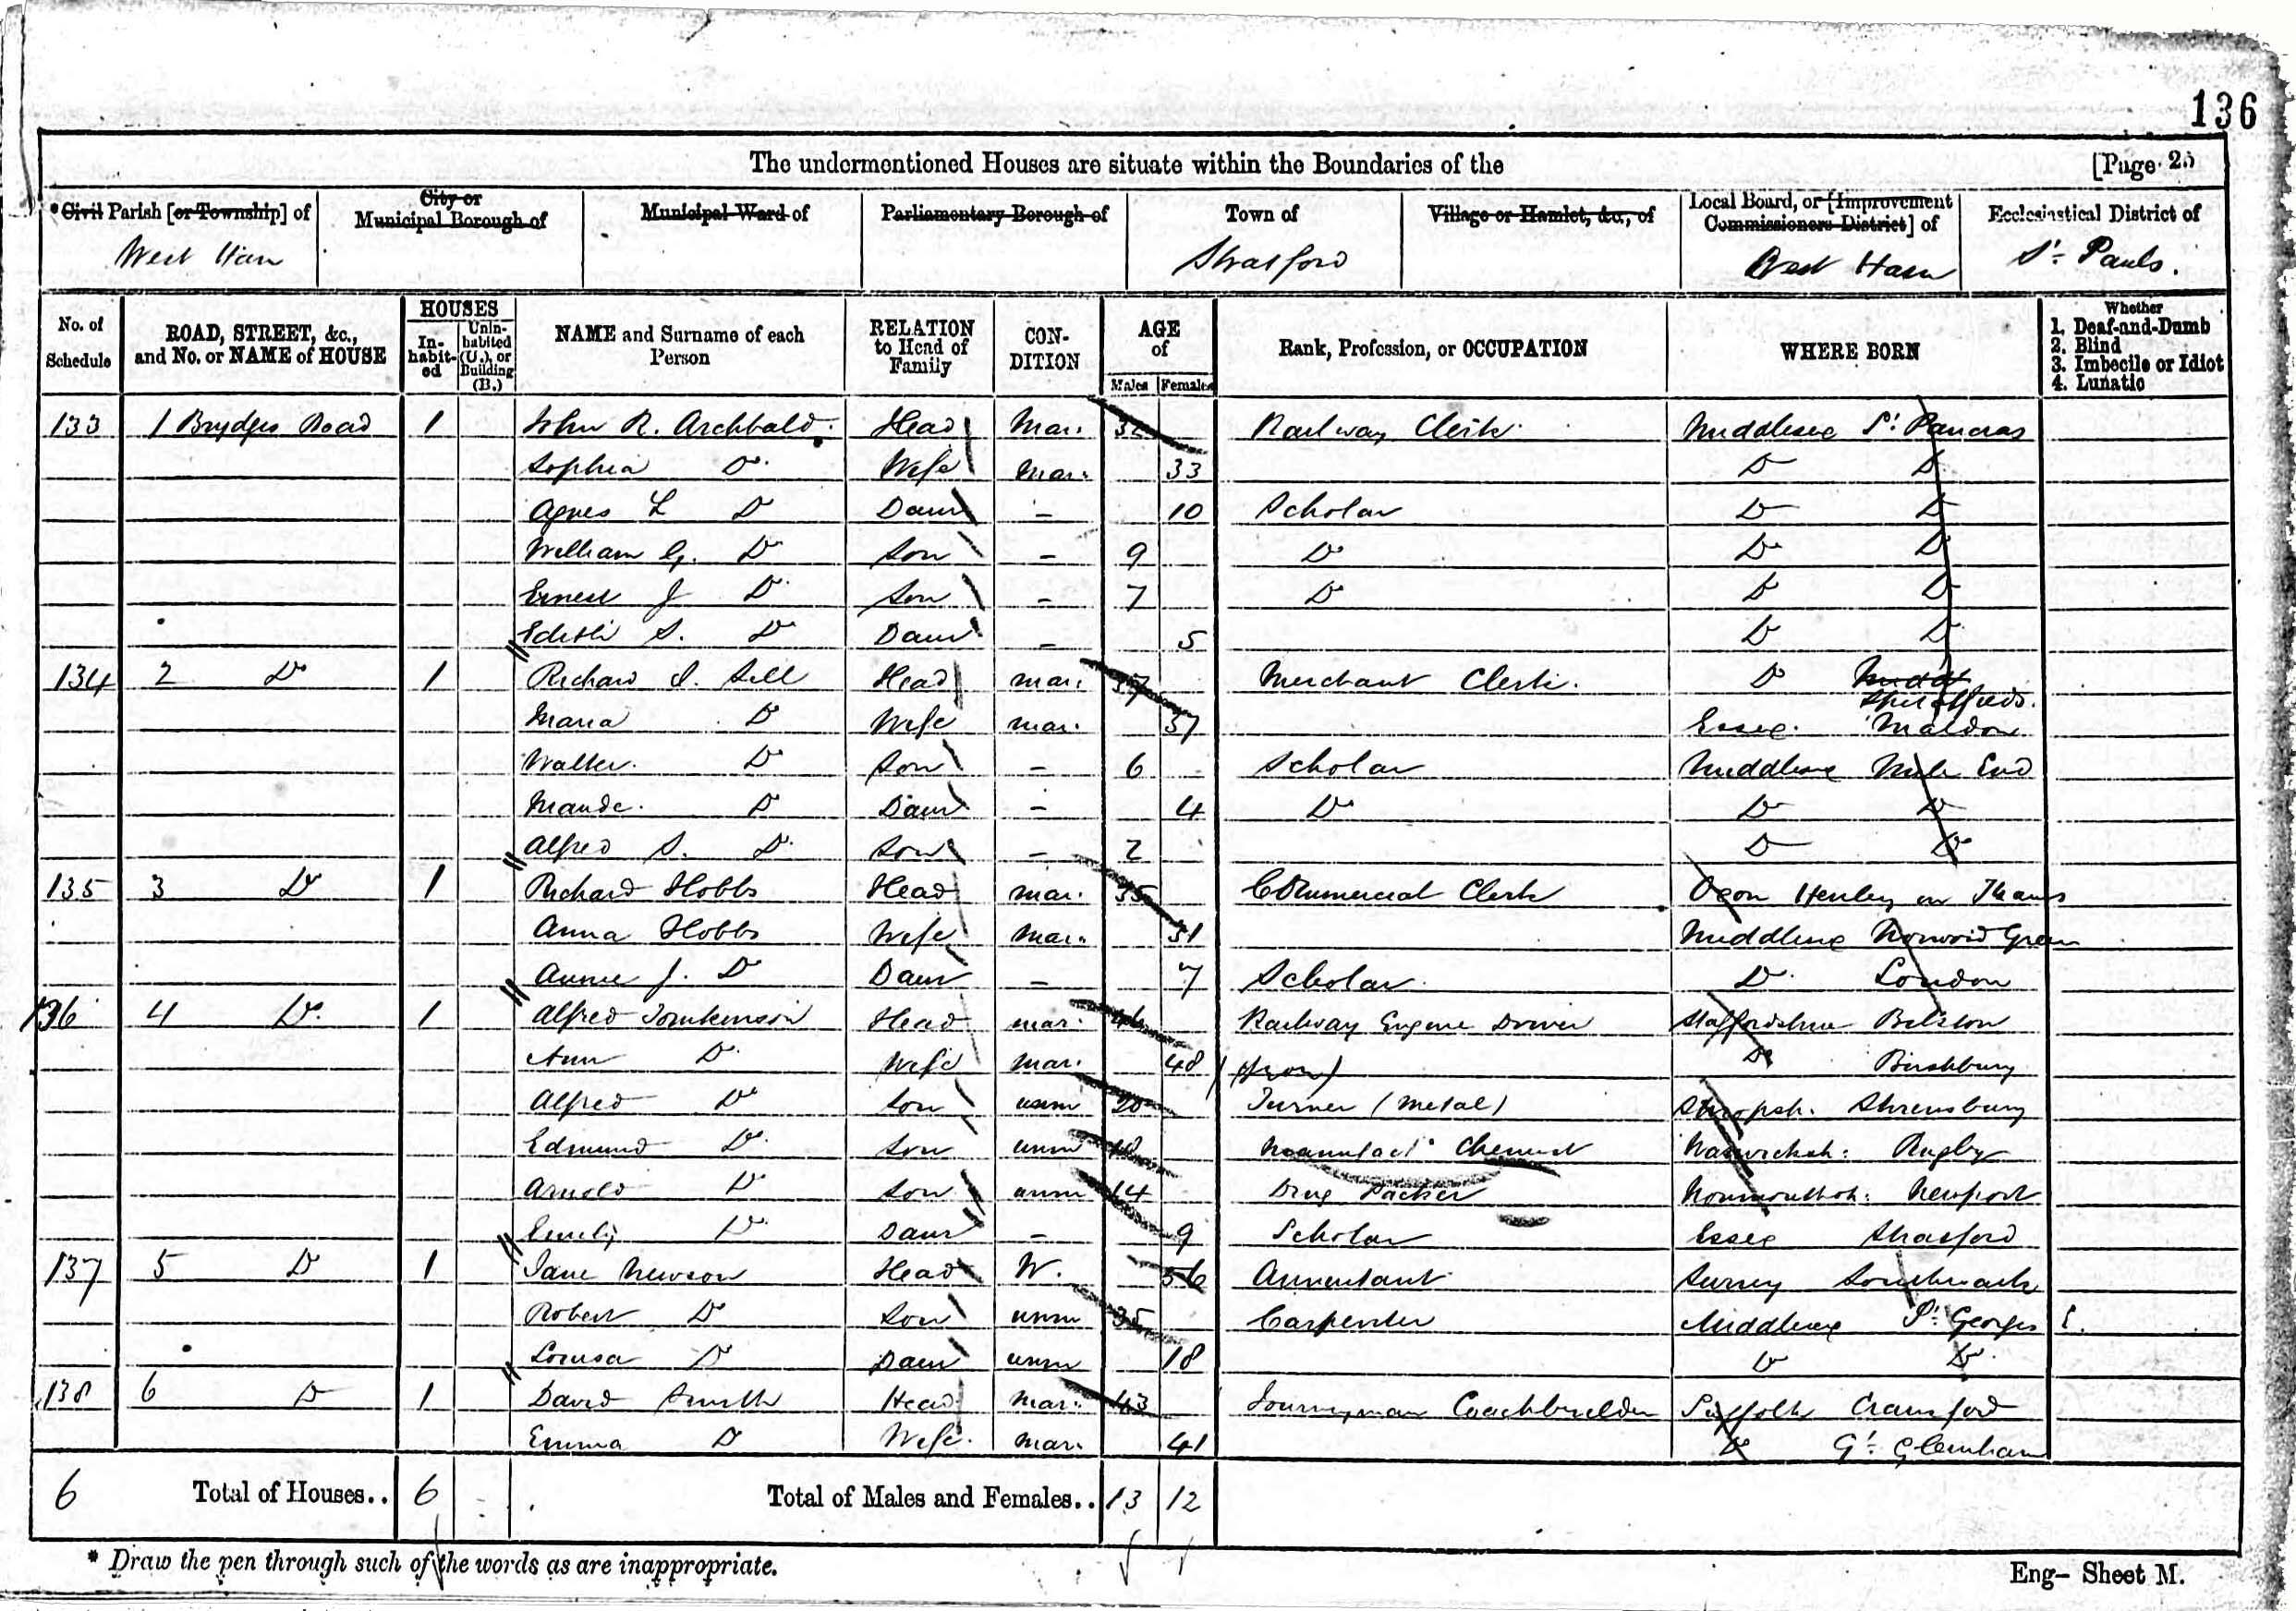 136
The undermentioned Houses are situate within the Boundaries of the [Page 25
*Civil Parish [or Township] of City or Municipal Borough of Municipal Ward of Parliamentary Borough of Town of Village or Hamlet, &c., of Local Board, or [Improvement Commissioners District] of Ecclesiastical District of
West Ham Stratford West Ham St. Pauls.
No. of Schedule ROAD, STREET, &c., and No. or NAME of HOUSE HOUSES In-habit-ed Unin-habited (U.), or Building (B.) NAME and Surname of each Person RELATION to Head of Family CON-DITION AGE of Males Females Rank, Profession, or OCCUPATION WHERE BORN Whether 1. Deaf-and-Dumb 2. Blind 3. Imbecile or Idiot 4. Lunatic
133 1 Brydges Road 1 John R. Archbald Head Mar. Railway Clerk Middlesex St. Pancras
Sophia Do. Wife Mar. 33 Do Do
Agnes L Do Daur - 10 Scholar Do Do
William G. Do Son - 9 Do Do Do
Ernest J Do Son - 7 Do Do Do
Edith S. Do Daur - 5 Do Do
134 2 Do 1 Richard S. Sell Head Mar. 37 Merchant Clerk. Do Spitalfields.
Maria Do Wife Mar. 37 Essex. Maldon
Walter. Do Son - 6 Scholar Middlesex Mile End
Maude. Do Daur - 4 Do Do Do
Alfred S. Do Son - 2 Do Do
135 3 Do 1 Richard Hobbs Head Mar. 35 Commercial Clerk Oxon Henley on Thames
Anna Hobbs Wife Mar. 31 Middlesex Norwood Green
Annie J. Do Daur - 7 Scholar Do. London
136 4 Do. 1 Alfred Tomkinson Head Mar. 46 Railway Engine Driver Staffordshire Bilston
Ann Do. Wife Mar. 48 (Iron) Do Bushbury
Alfred Do Son unm 20 Turner (Metal) Shropsh. Shrewsbury
Edmund Do. Son unm 18 Manufact. Chemist Warwicksh: Rugby
Arnold Do. Son unm 14 Drug Packer Monmouthsh: Newport
Emily Do. Daur - 9 Scholar Essex Stratford
137 5 Do 1 Jane Newson Head W. 56 Annuitant Surrey Southwark
Robert Do Son unm 35 Carpenter Middlesex St. Georges E.
Louisa Do Daur unm 18 Do Do.
138 6 Do 1 David Smith Head Mar. 43 Journeyman Coachbuilder Suffolk Cransford
Emma Do Wife. Mar. 41 Do Gt. Glemham
6 Total of Houses.. 6 Total of Males and Females.. 13 12
* Draw the pen through such of the words as are inappropriate.
Eng- Sheet M.